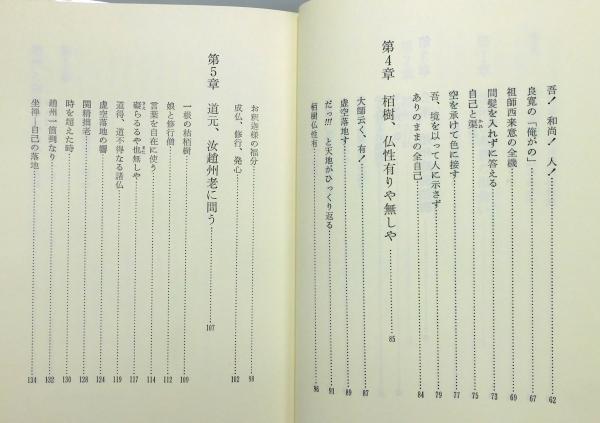 吾！ 和尚！ 人！ 62
良寛の「俺がの」 67
祖師西来意の全機 69
間髪を入れずに答える 73
自己と渠 かれ 75
空を承けて色に接す 77
吾、境を以って人に示さず 79
ありのままの全自己 84
第4章 栢樹、仏性有りや無しや 85
大師云く、有！ 87
虚空落地す 89
だっ!!! と天地がひっくり返る 91
栢樹仏性有 96
お釈迦様の福分 98
成仏、修行、発心 102
第5章 道元、汝趙州老に問う 107
一根の枯栢樹 109
娘と修行僧 112
言葉を自在に使う 114
礙らるるや也無しや 117
道得、道不得なる諸仏 119
虚空落地の響 124
関精摝老 128
時を超えた時 130
趙州一箇到なり 132
坐禅—自己の落地 134